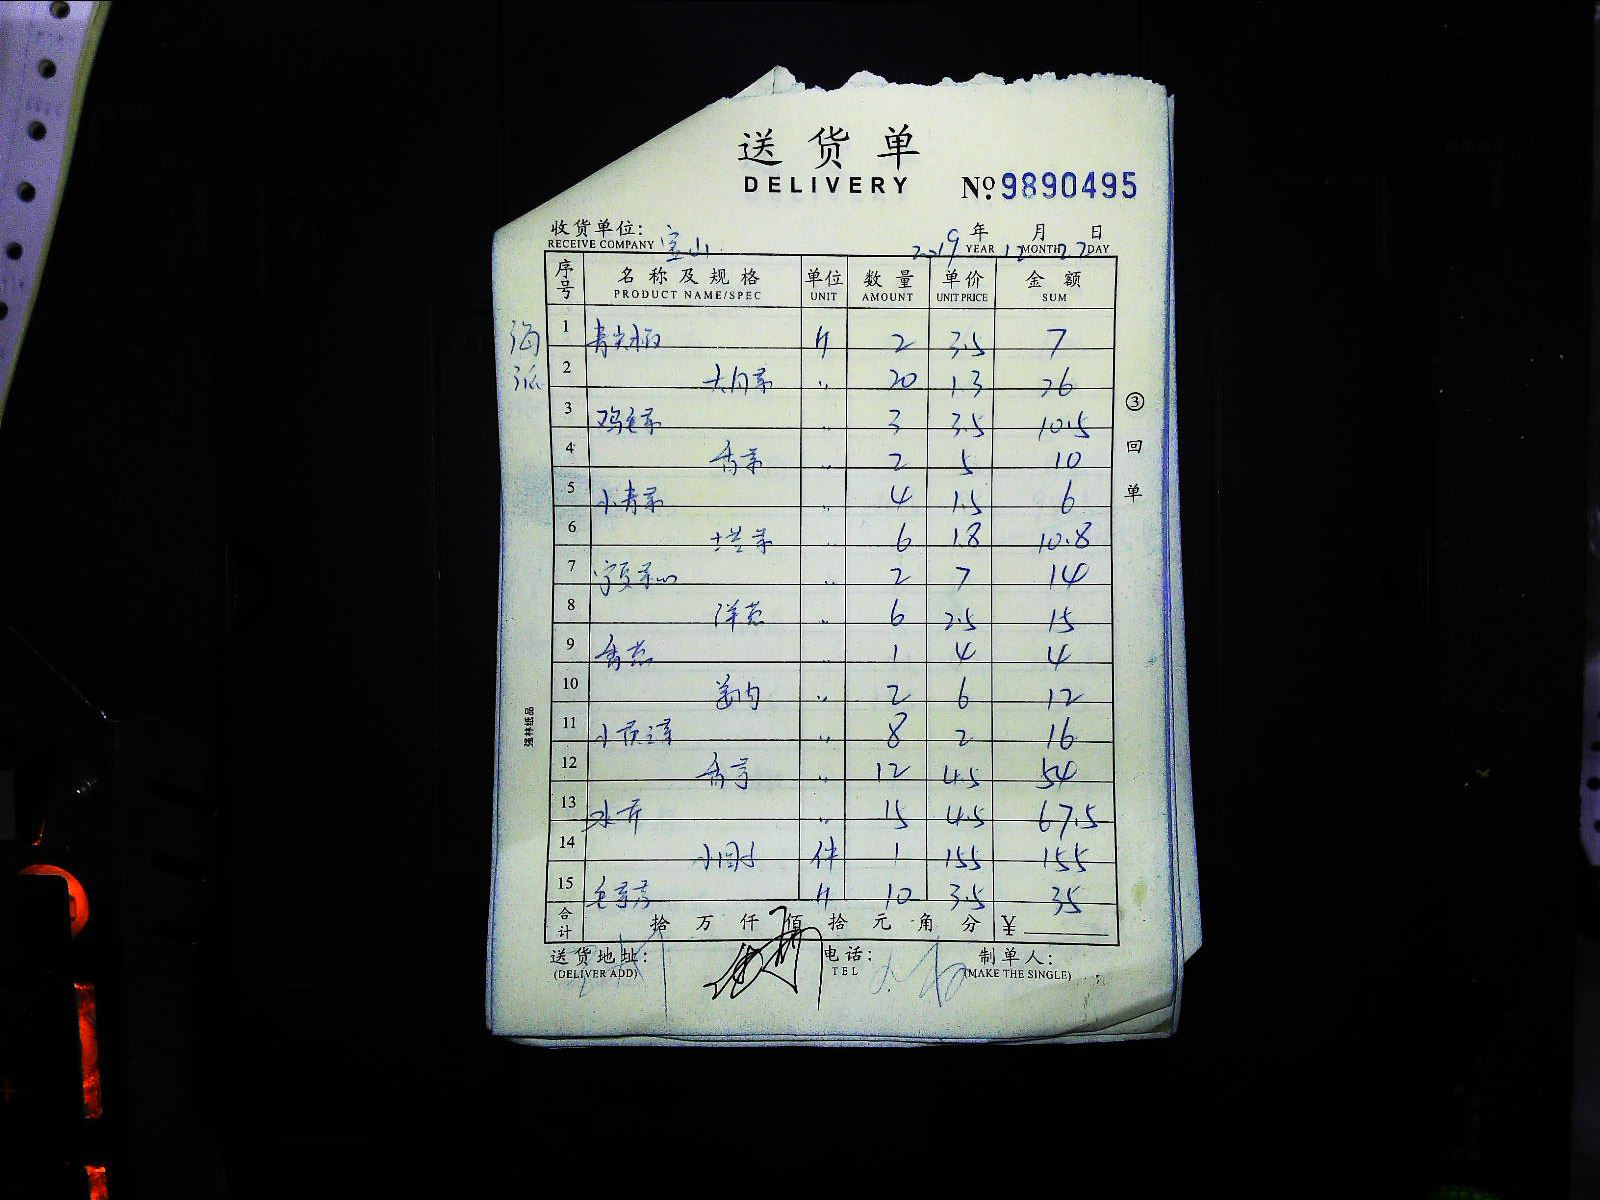 送货单
DELIVERY
No. 9890495
收货单位: 宝山 2019 年 12 月 27 日
RECEIVE COMPANY YEAR MONTH DAY
序号 名称及规格 单位 数量 单价 金额
PRODUCT NAME/SPEC UNIT AMOUNT UNIT PRICE SUM
1 青尖椒 斤 2 3.5 7
2 大白菜 〃 20 1.3 26
3 鸡毛菜 〃 3 3.5 10.5
4 香菜 〃 2 5 10
5 小青菜 〃 4 1.5 6
6 〃 6 1.8 10.8
7 〃 2 7 14
8 洋葱 〃 6 2.5 15
9 香葱 〃 1 4 4
10 〃 2 6 12
11 〃 8 2 16
12 〃 12 4.5 54
13 水芹 〃 15 4.5 67.5
14 件 1 155 155
15 斤 10 3.5 35
合计 拾 万 仟 佰 拾 元 角 分 ¥
送货地址: 电话: 制单人:
(DELIVER ADD) TEL (MAKE THE SINGLE)
③回单
强林纸品